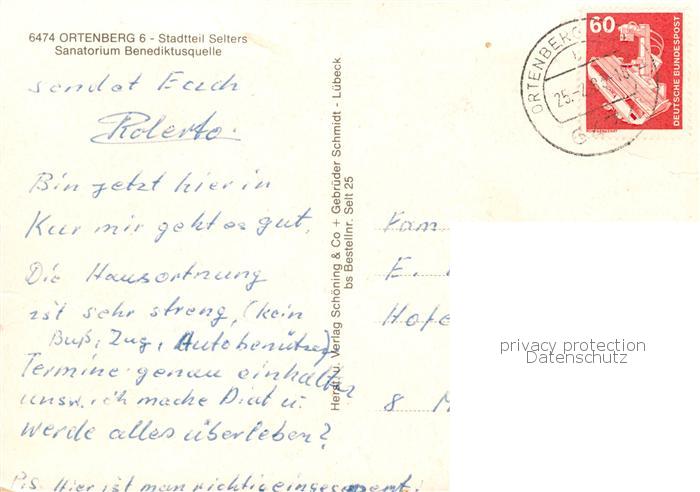 6474 ORTENBERG 6 - Stadtteil Selters
Sanatorium Benediktusquelle
sendet Euch
Roberto.
Bin jetzt hier in
Kur mir geht es gut,
Die Hausortnung
ist sehr streng, (kein
Buß, Zug, Autobenützen)
Termine genau einhalten
unsw. ich mache Diat u.
werde alles überleben?
P.S. Hier ist man richtig eingesperrt!
Herst. u. Verlag Schöning & Co + Gebrüder Schmidt - Lübeck
bs Bestellnr. Selt 25
60
DEUTSCHE BUNDESPOST
ORTENBERG
25.-2.8
Fam
E.
Hofe
8 M
privacy protection
Datenschutz